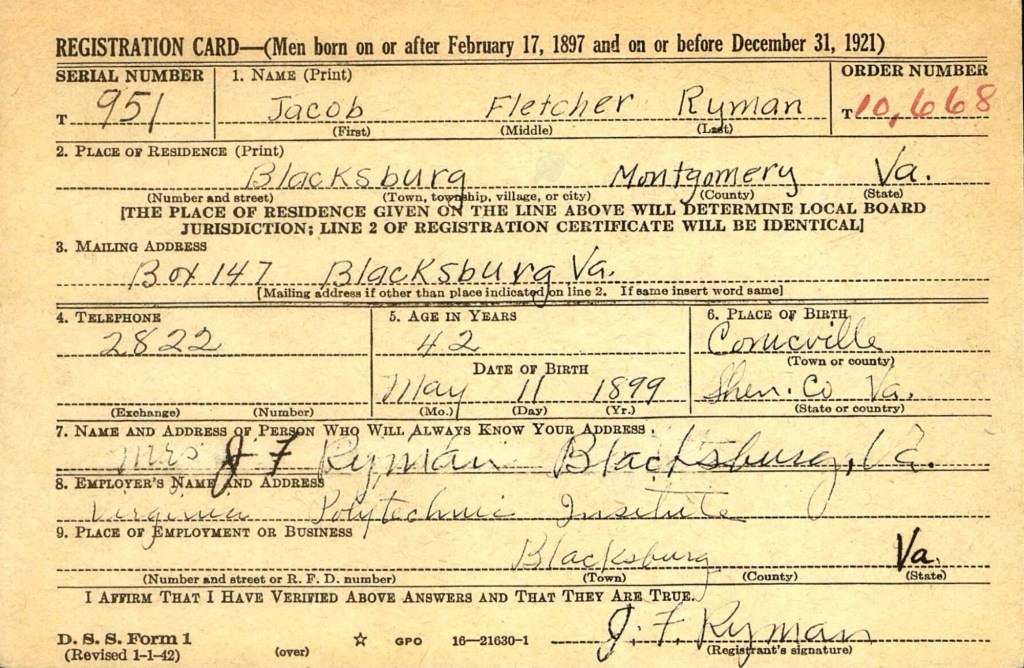 REGISTRATION CARD—(Men born on or after February 17, 1897 and on or before December 31, 1921)
SERIAL NUMBER 1. NAME (Print) ORDER NUMBER
T 951 Jacob Fletcher Ryman T 10,668
(First) (Middle) (Last)
2. PLACE OF RESIDENCE (Print)
Blacksburg Montgomery Va.
(Number and street) (Town, township, village, or city) (County) (State)
[THE PLACE OF RESIDENCE GIVEN ON THE LINE ABOVE WILL DETERMINE LOCAL BOARD
JURISDICTION; LINE 2 OF REGISTRATION CERTIFICATE WILL BE IDENTICAL]
3. MAILING ADDRESS
Box 147 Blacksburg Va.
[Mailing address if other than place indicated on line 2. If same insert word same]
4. TELEPHONE 5. AGE IN YEARS 6. PLACE OF BIRTH
2822 42 Conicville
(Town or county)
DATE OF BIRTH
May 11 1899 Shen. Co Va.
(Exchange) (Number) (Mo.) (Day) (Yr.) (State or country)
7. NAME AND ADDRESS OF PERSON WHO WILL ALWAYS KNOW YOUR ADDRESS
Mrs J F Ryman Blacksburg, Va.
8. EMPLOYER'S NAME AND ADDRESS
Virginia Polytechnic Insitute
9. PLACE OF EMPLOYMENT OR BUSINESS
Blacksburg Va.
(Number and street or R. F. D. number) (Town) (County) (State)
I AFFIRM THAT I HAVE VERIFIED ABOVE ANSWERS AND THAT THEY ARE TRUE.
J. F. Ryman
D. S. S. Form 1
(Revised 1-1-42) (over) ☆ GPO 16—21630-1 (Registrant's signature)